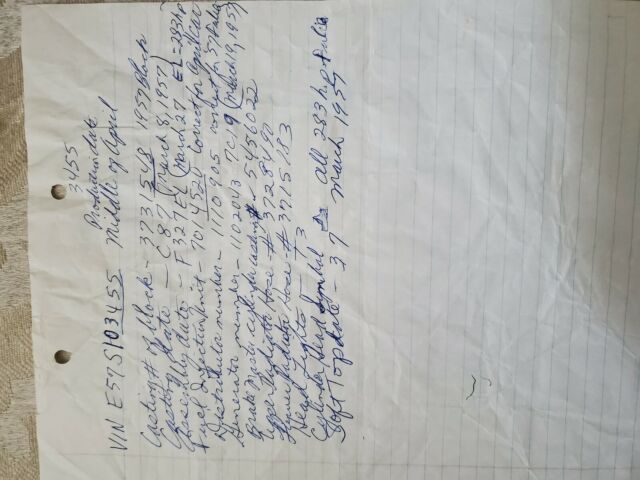 3455
Production date
VIN E57S103455 middle of April
Casting # of block - 3731548 1957 Block
Casting date - C 8 7 (March 8, 1957)
Assembly date - F327EL (March 27 EL = 283hp
Fuel Injection Unit - 7014520 Correct for application
Distributor number - 1110905 correct for 57 Fuelie
Generator number - 1102043 7C19 (March 19, 1957)
Brake Master cylinder casting # - 5456022
Upper Radiator Hose # 3728490
Lower Radiator Hose - # 3715183
Head Lights - T 3
Cylinder Head Symbol all 283 hp + Fulie
Soft Top date - 3 7 March 1957